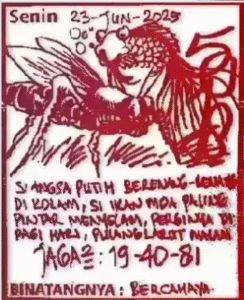 Senin 23-JUN-2025
SI ANGSA PUTIH BERENANG-
DI KOLAM, SI IKAN MDA PALING
PINTAR MENYELAM, PERGINYA DI
PAGI HARI, PULANG LARUT MALAM
JAGA2 : 19-40-81
BINATANGNYA : BERCAHAYA.